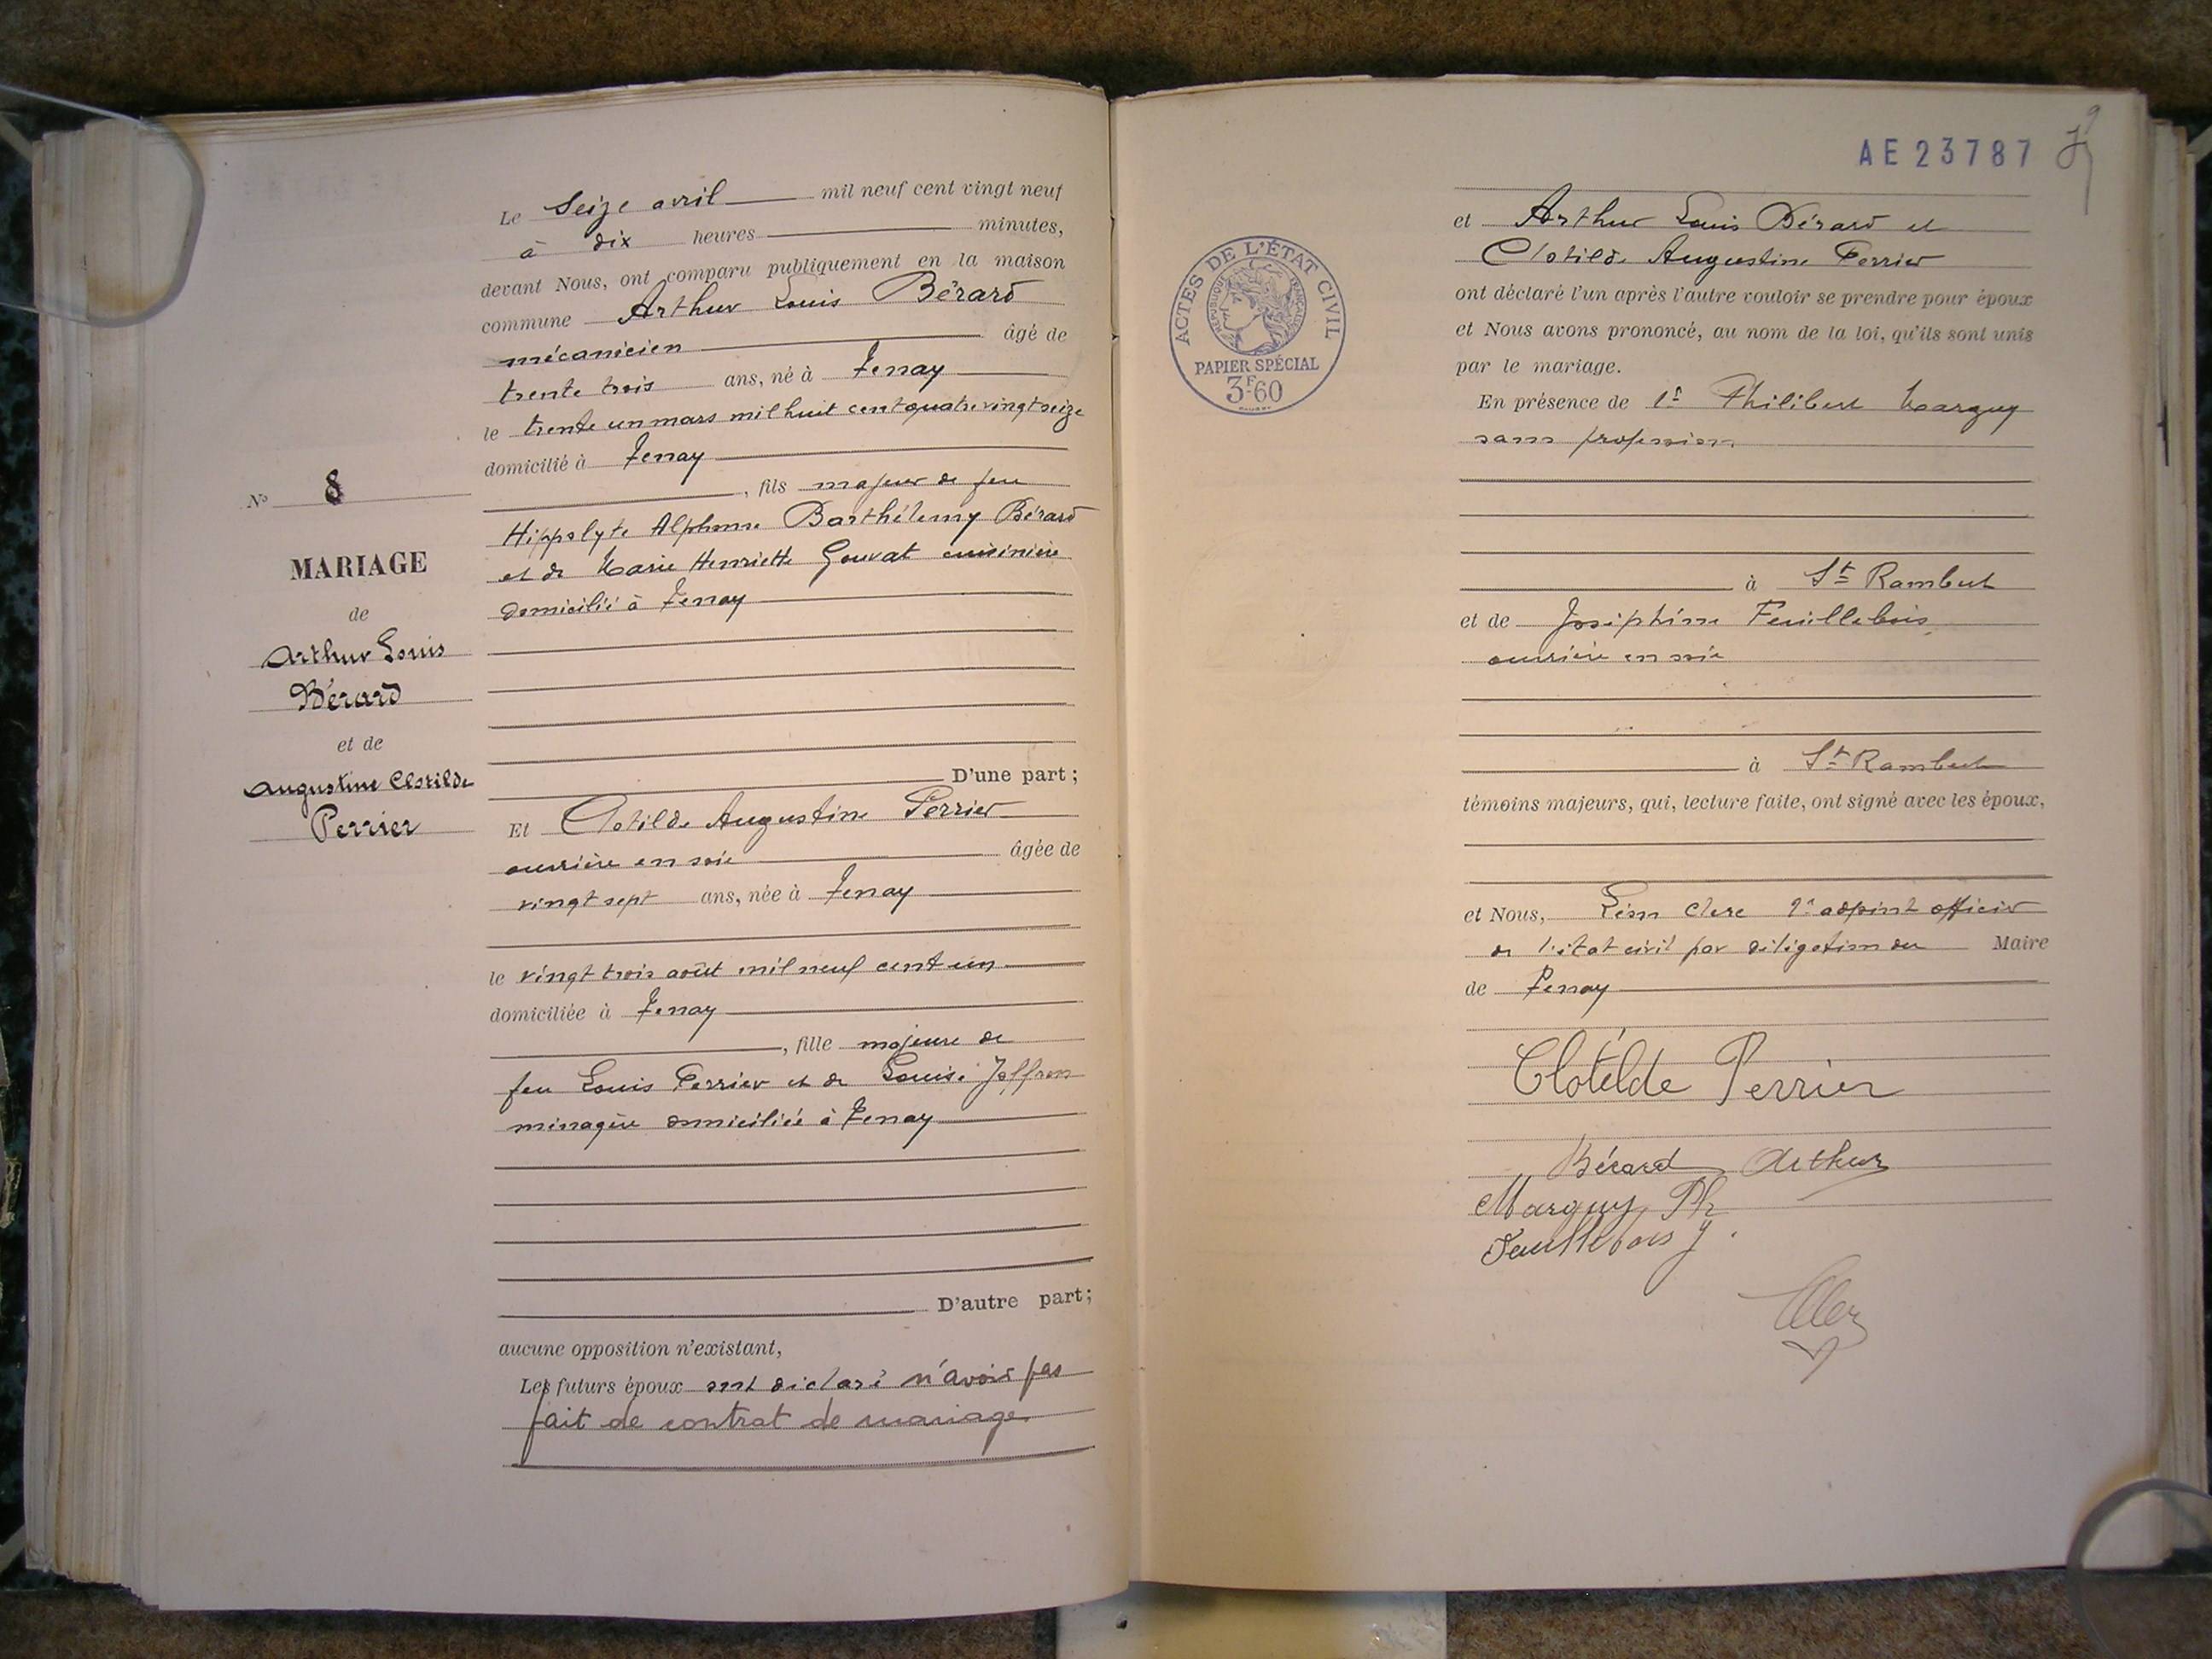 N° 8
MARIAGE
de
Arthur Louis
Bérard
et de
Augustine Clotilde
Perrier
Le Seize avril mil neuf cent vingt neuf
à dix heures minutes,
devant Nous, ont comparu publiquement en la maison
commune Arthur Louis Bérard
mécanicien âgé de
trente trois ans, né à Tenay
le trente un mars mil huit cent quatre vingt seize
domicilié à Tenay
, fils majeur de feu
Hippolyte Alphonse Barthélemy Bérard
et de Marie Henriette Gouvat cuisinière
domicilié à Tenay
D'une part;
Et Clotilde Augustine Perrier
ouvrière en soie âgée de
vingt sept ans, née à Tenay
le vingt trois août mil neuf cent un
domiciliée à Tenay
, fille majeure de
feu Louis Perrier et de Louise Joffron
ménagère domiciliée à Tenay
D'autre part;
aucune opposition n'existant,
Les futurs époux ont déclaré n'avoir pas
fait de contrat de mariage.
AE 23787
ACTES DE L'ÉTAT CIVIL
RÉPUBLIQUE FRANÇAISE
PAPIER SPÉCIAL
3F60
et Arthur Louis Bérard et
Clotilde Augustine Perrier
ont déclaré l'un après l'autre vouloir se prendre pour époux
et Nous avons prononcé, au nom de la loi, qu'ils sont unis
par le mariage.
En présence de Philibert Marguy
sans profession
à St Rambert
et de Joséphine Feuillebois
ouvrière en soie
à St Rambert
témoins majeurs, qui, lecture faite, ont signé avec les époux,
et Nous, Léon Clerc 1er adjoint officier
de l'état civil par délégation du Maire
de Tenay
Clotilde Perrier
Bérard Arthur
Marguy Ph
Feuillebois J.